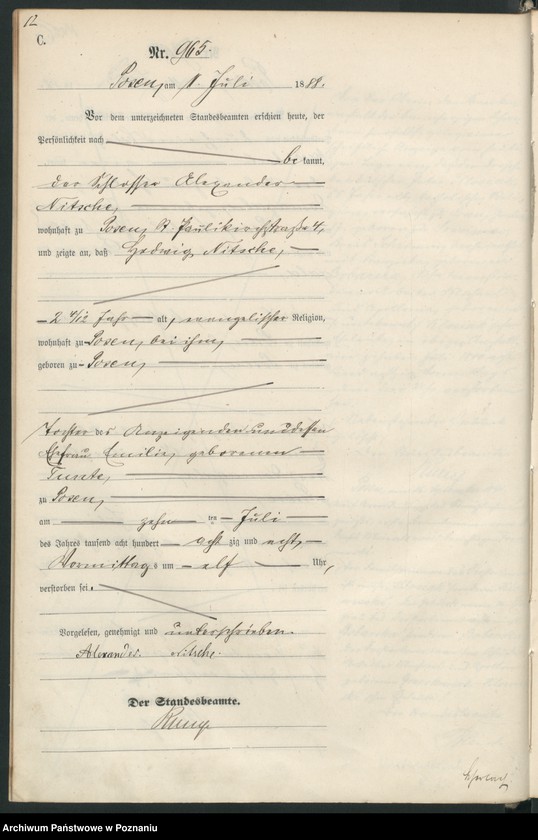 12
C.
Nr. 965.
Posen, am Juli 1888.
Vor dem unterzeichneten Standesbeamten erschien heute, der
Persönlichkeit nach
be kannt,
der Schlosser Alexander
Nitsche,
wohnhaft zu Posen, St. Paulikirchstraße 4,
und zeigte an, daß Hedwig Nitsche,
2 4/12 Jahr alt, evangelischer Religion,
wohnhaft zu Posen, bei ihm,
geboren zu Posen,
Tochter des Anzeigenden und dessen
Ehefrau Emilie, geborenen
zu Posen,
am zehn ten Juli
des Jahres tausend acht hundert acht zig und acht,
Vormittags um elf Uhr,
verstorben sei.
Vorgelesen, genehmigt und unterschrieben.
Alexander Nitsche.
Der Standesbeamte.
Archiwum Państwowe w Poznaniu